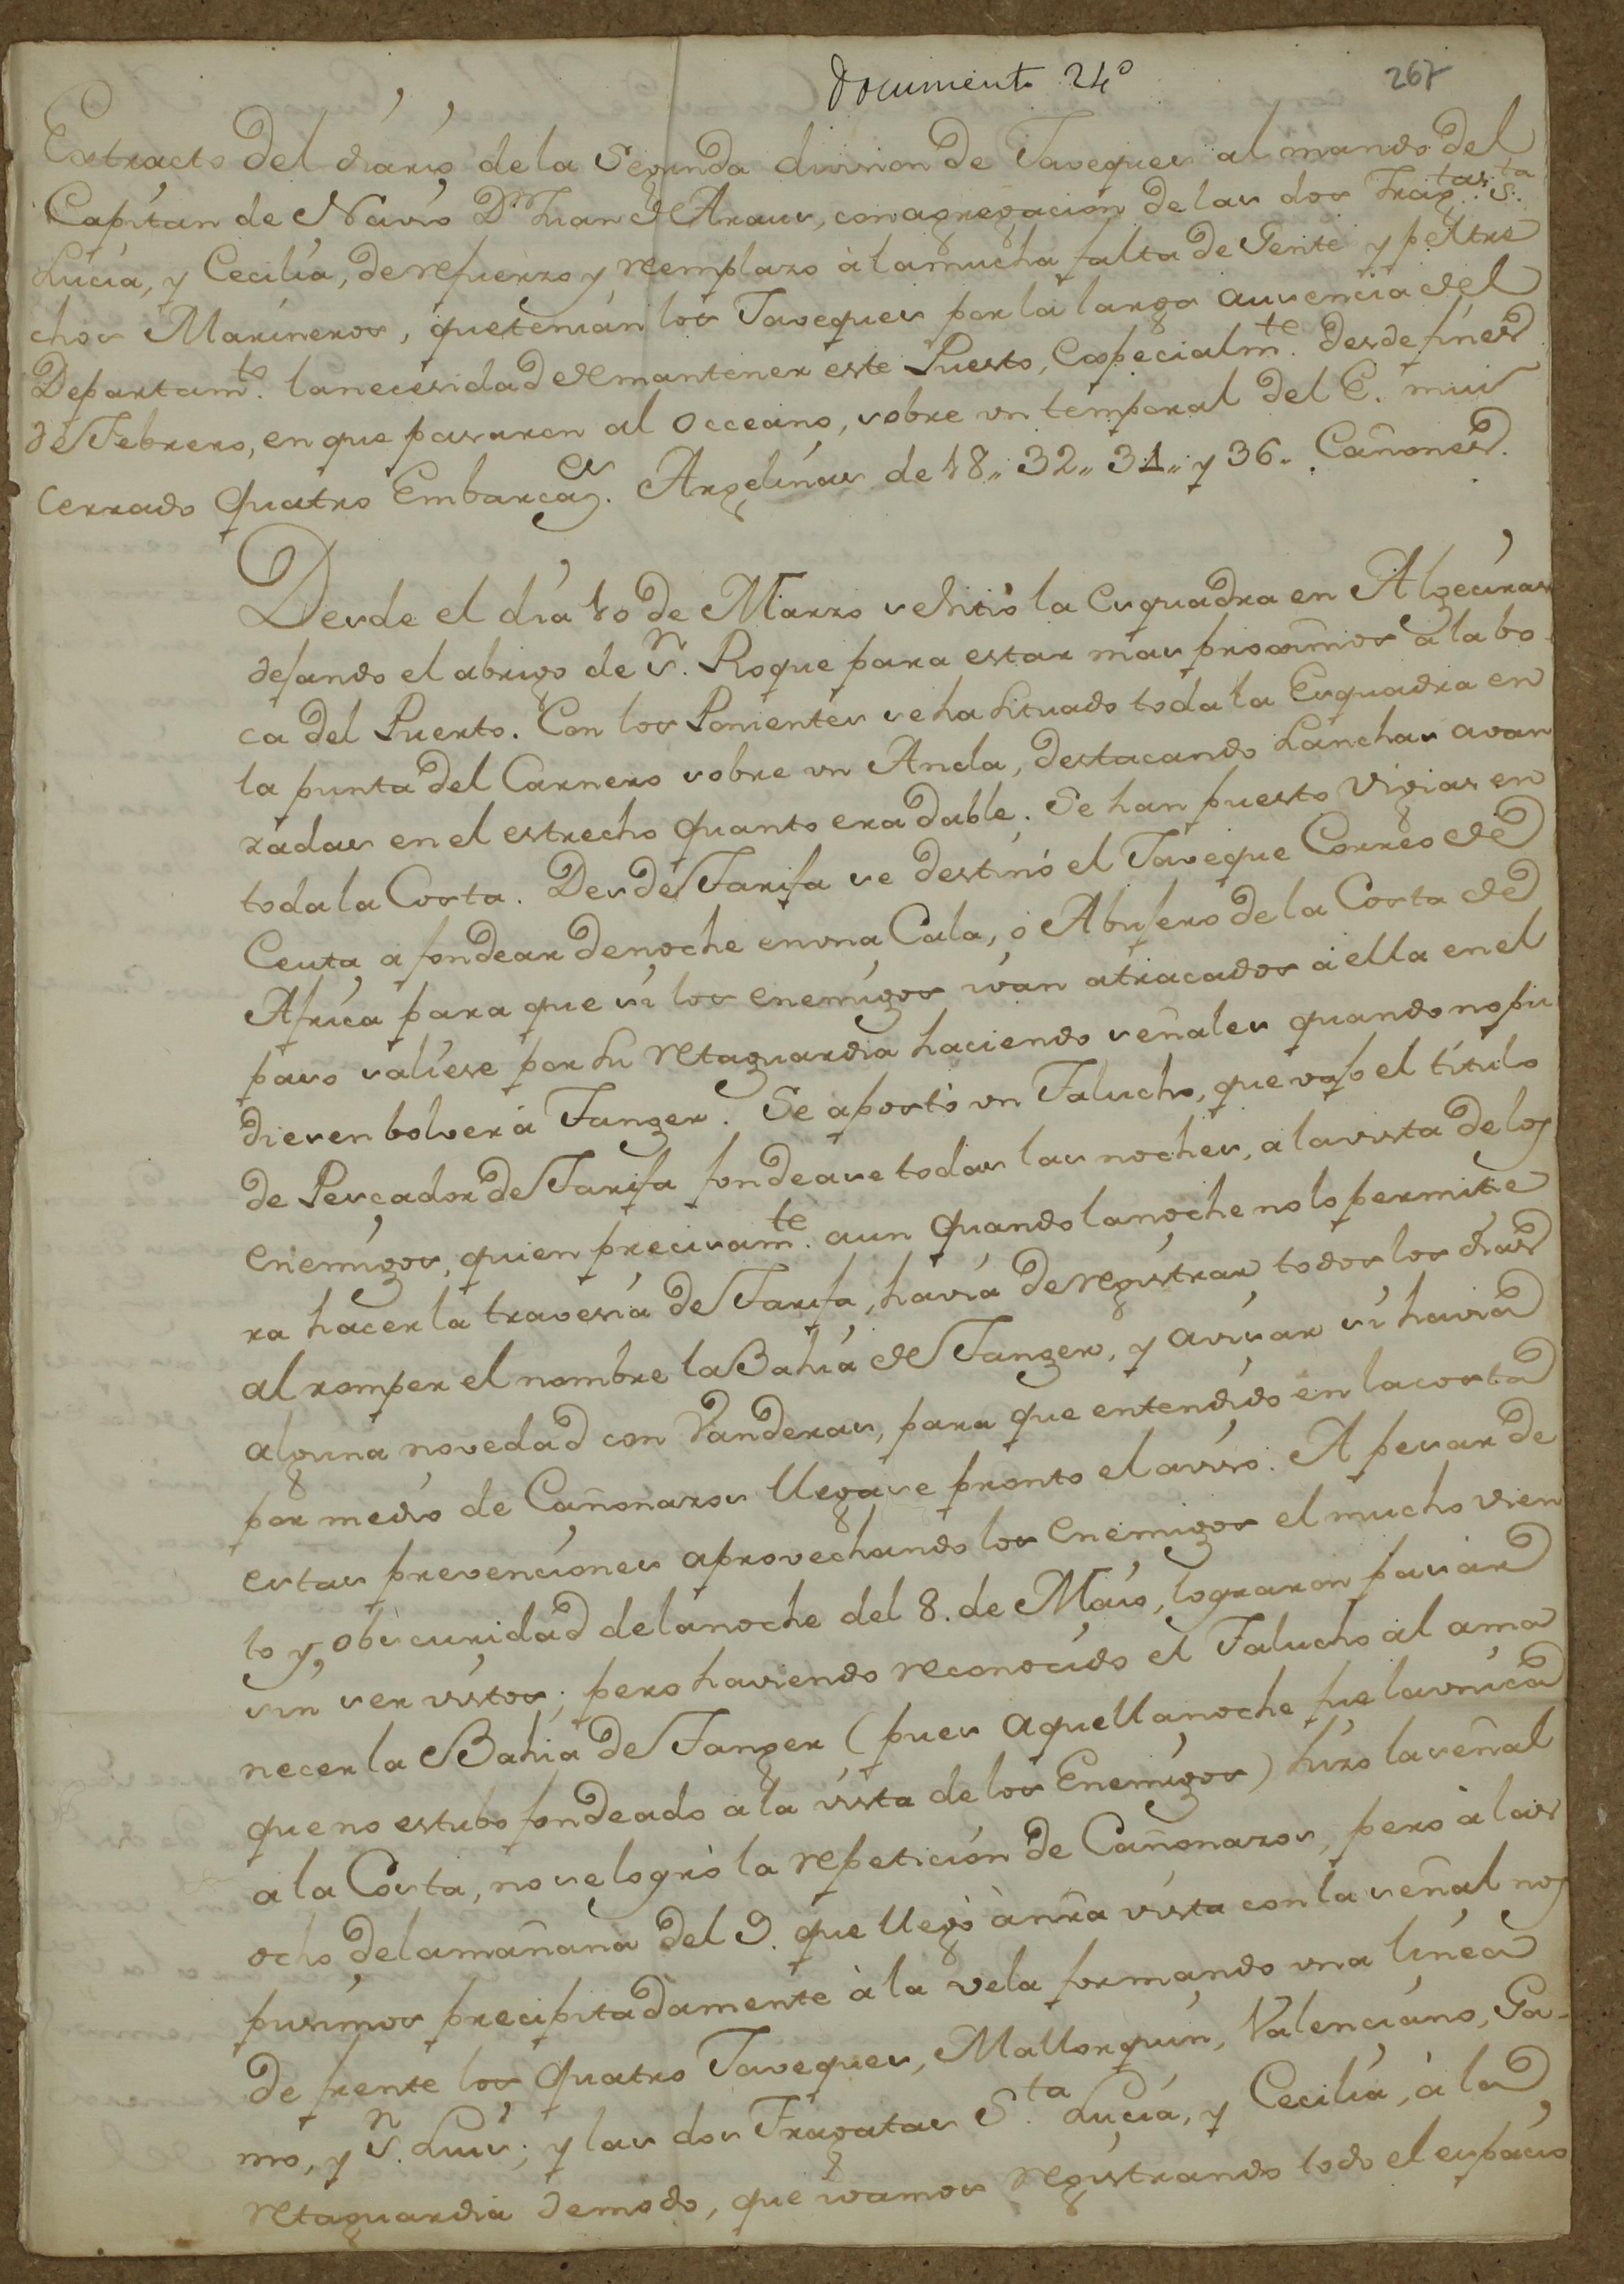 Documento 24º
267
Extracto del diario de la Segunda division de Javeques al mando del
Capitan de Navio Dn. Juan de Araus, con agregacion de las dos Fragtas. Sta.
Lucia, y Cecilia, de refuerzo y reemplazo à la mucha falta de Gente y peltre
chos Marineros, que tenian los Javeques por la larga ausencia del
Departamto. la necesidad de mantener este Puesto, Especialmte. desde fines
de Febrero, en que pasaron al Occeano, sobre un temporal del E. mui
cerrado quatro Embarcaes. Argelinas de 18,, 32,, 34,, y 36,, Cañones.
Desde el dia 10 de Marzo se situò la Esquadra en Algeciras
dejando el abrigo de Sn. Roque para estar mas proximos à la bo
ca del Puerto. Con los Ponientes se ha situado toda la Esquadra en
la punta del Carnero sobre un Ancla, destacando Lanchas avan
zadas en el estrecho quanto era dable. Se han puesto Vigias en
toda la Costa. Desde Tarifa se destinó el Javeque Correo de
Ceuta a fondear de noche en una Cala, ò Abujero de la Costa de
Africa para que si los enemigos ivan atracados à ella en el
paso saliese por su retaguardia haciendo señales quando no pu
diesen bolver à Tanger. Se apostò un Falucho, que vajo el titulo
de Pescador de Tarifa fondease todas las noches, a la vista de los
Enemigos, quien precisamte. aun quando la noche no lo permitie
ra hacer la travesia de Tarifa, havia de registrar todos los dias
al romper el nombre la Bahia de Tanger, y avisar si havia
alguna novedad con Vanderas, para que entendido en la costa
por medio de Cañonazos llegase pronto el aviso. A pesar de
estas prevenciones aprovechando los Enemigos el mucho vien
to y obscuridad de la noche del 8. de Maio, lograron pasar
sin ser vistos; pero haviendo reconocido el Falucho al ama
necer la Bahia de Tanger (pues aquella noche fue la unica
que no estubo fondeado a la vista de los Enemigos) hizo la señal
a la Costa, no se logrò la repeticion de Cañonazos, pero à las
ocho de la mañana del 9. que llegò à nra vista con la señal nos
pusimos precipitadamente à la vela formando una linea
de frente los quatro Javeques, Mallorquin, Valenciano, Ga-
mo, y Sn. Luis; y las dos Fragatas Sta. Lucia, y Cecilia, à la
retaguardia de modo, que ivamos registrando todo el espacio